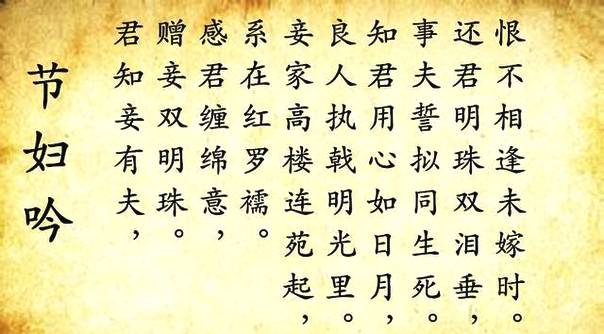 节妇吟
君知妾有夫，
赠妾双明珠。
感君缠绵意，
系在红罗襦。
妾家高楼连苑起，
良人执戟明光里。
知君用心如日月，
事夫誓拟同生死。
还君明珠双泪垂，
恨不相逢未嫁时。